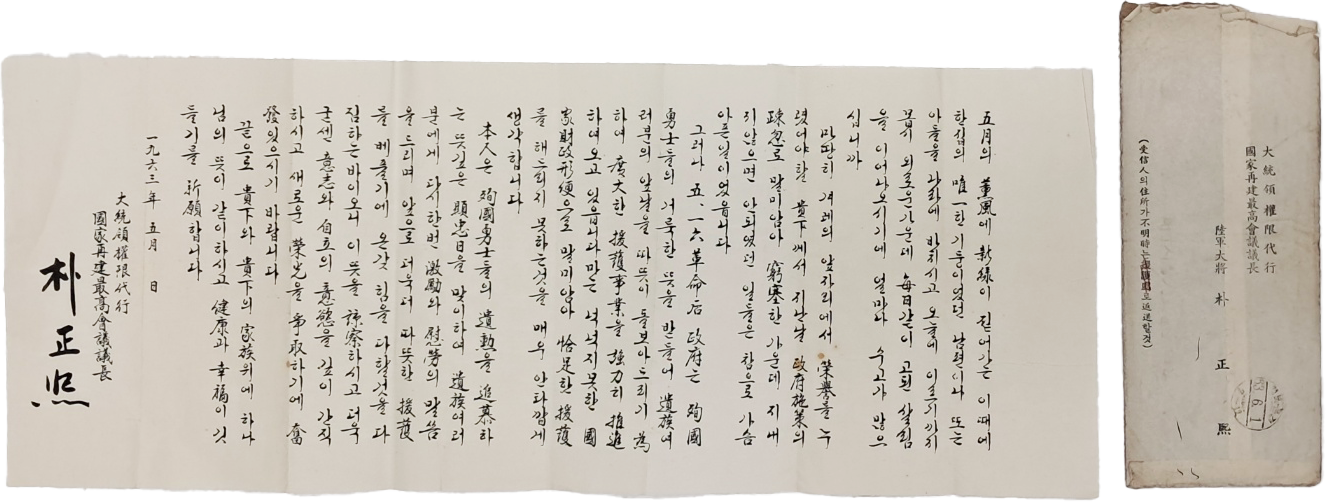 五月의 薰風에 新綠이 짙어가는 이때에
한집의 唯一한 기둥이었던 남편이나 또는
아들을 나라에 바치시고 오늘에 이르기까지
몹시 외로운가운데 每日같이 고된 살림
을 이어나오시기에 얼마나 수고가 많으
십니까
마땅히 겨레의 앞자리에서 榮譽를 누
렸어야할 貴下께서 지난날 政府施策의
疎忽로 말미암아 窮塞한 가운데 지내
지않으면 안되었던 일들은 참으로 가슴
아픈일이었읍니다
그러나 五.一六革命后 政府는 殉國
勇士들의 거룩한 뜻을 받들어 遺族여
러분의 앞날을 따뜻이 돌보아드리기 爲
하여 广大한 援護事業을 强力히 推進
하여오고 있읍니다만는 넉넉지못한 國
家財政形便으로 말미암아 恰足한 援護
를 해드리지 못하는것을 매우 안타깝게
생각합니다
本人은 殉國勇士들의 遺勳을 追慕하
는 뜻깊은 顯忠日을 맞이하여 遺族여러
분에게 다시한번 激勵와 慰勞의 말씀
을 드리며 앞으로 더욱더 따뜻한 援護
를 베풀기에 온갖 힘을 다할것을 다
짐하는바이오니 이 뜻을 諒察하시고 더욱
굳센 意志와 自立의 意慾을 깊이 간직
하시고 새로운 榮光을 爭取하기에 奮
發있으시기 바랍니다
끝으로 貴下와 貴下의 家族위에 하나
님의 뜻이 같이하시고 健康과 幸福이 깃
들기를 祈願합니다
一九六三年 五月 日
大統領權限代行
國家再建最高會議議長
朴正熙
大統領權限代行
國家再建最高會議議長
陸軍大將 朴正熙
(受信人의住所가不明時는 立返還할것)